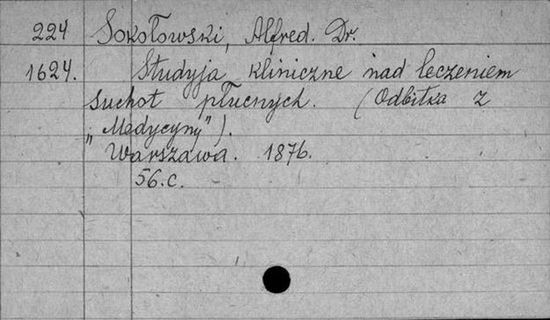 224 Sokołowski, Alfred. Dr.
1624. Studyja kliniczne nad leczeniem
suchot płucnych. (Odbitka z
„Medycyny").
Warszawa. 1876.
56.c.